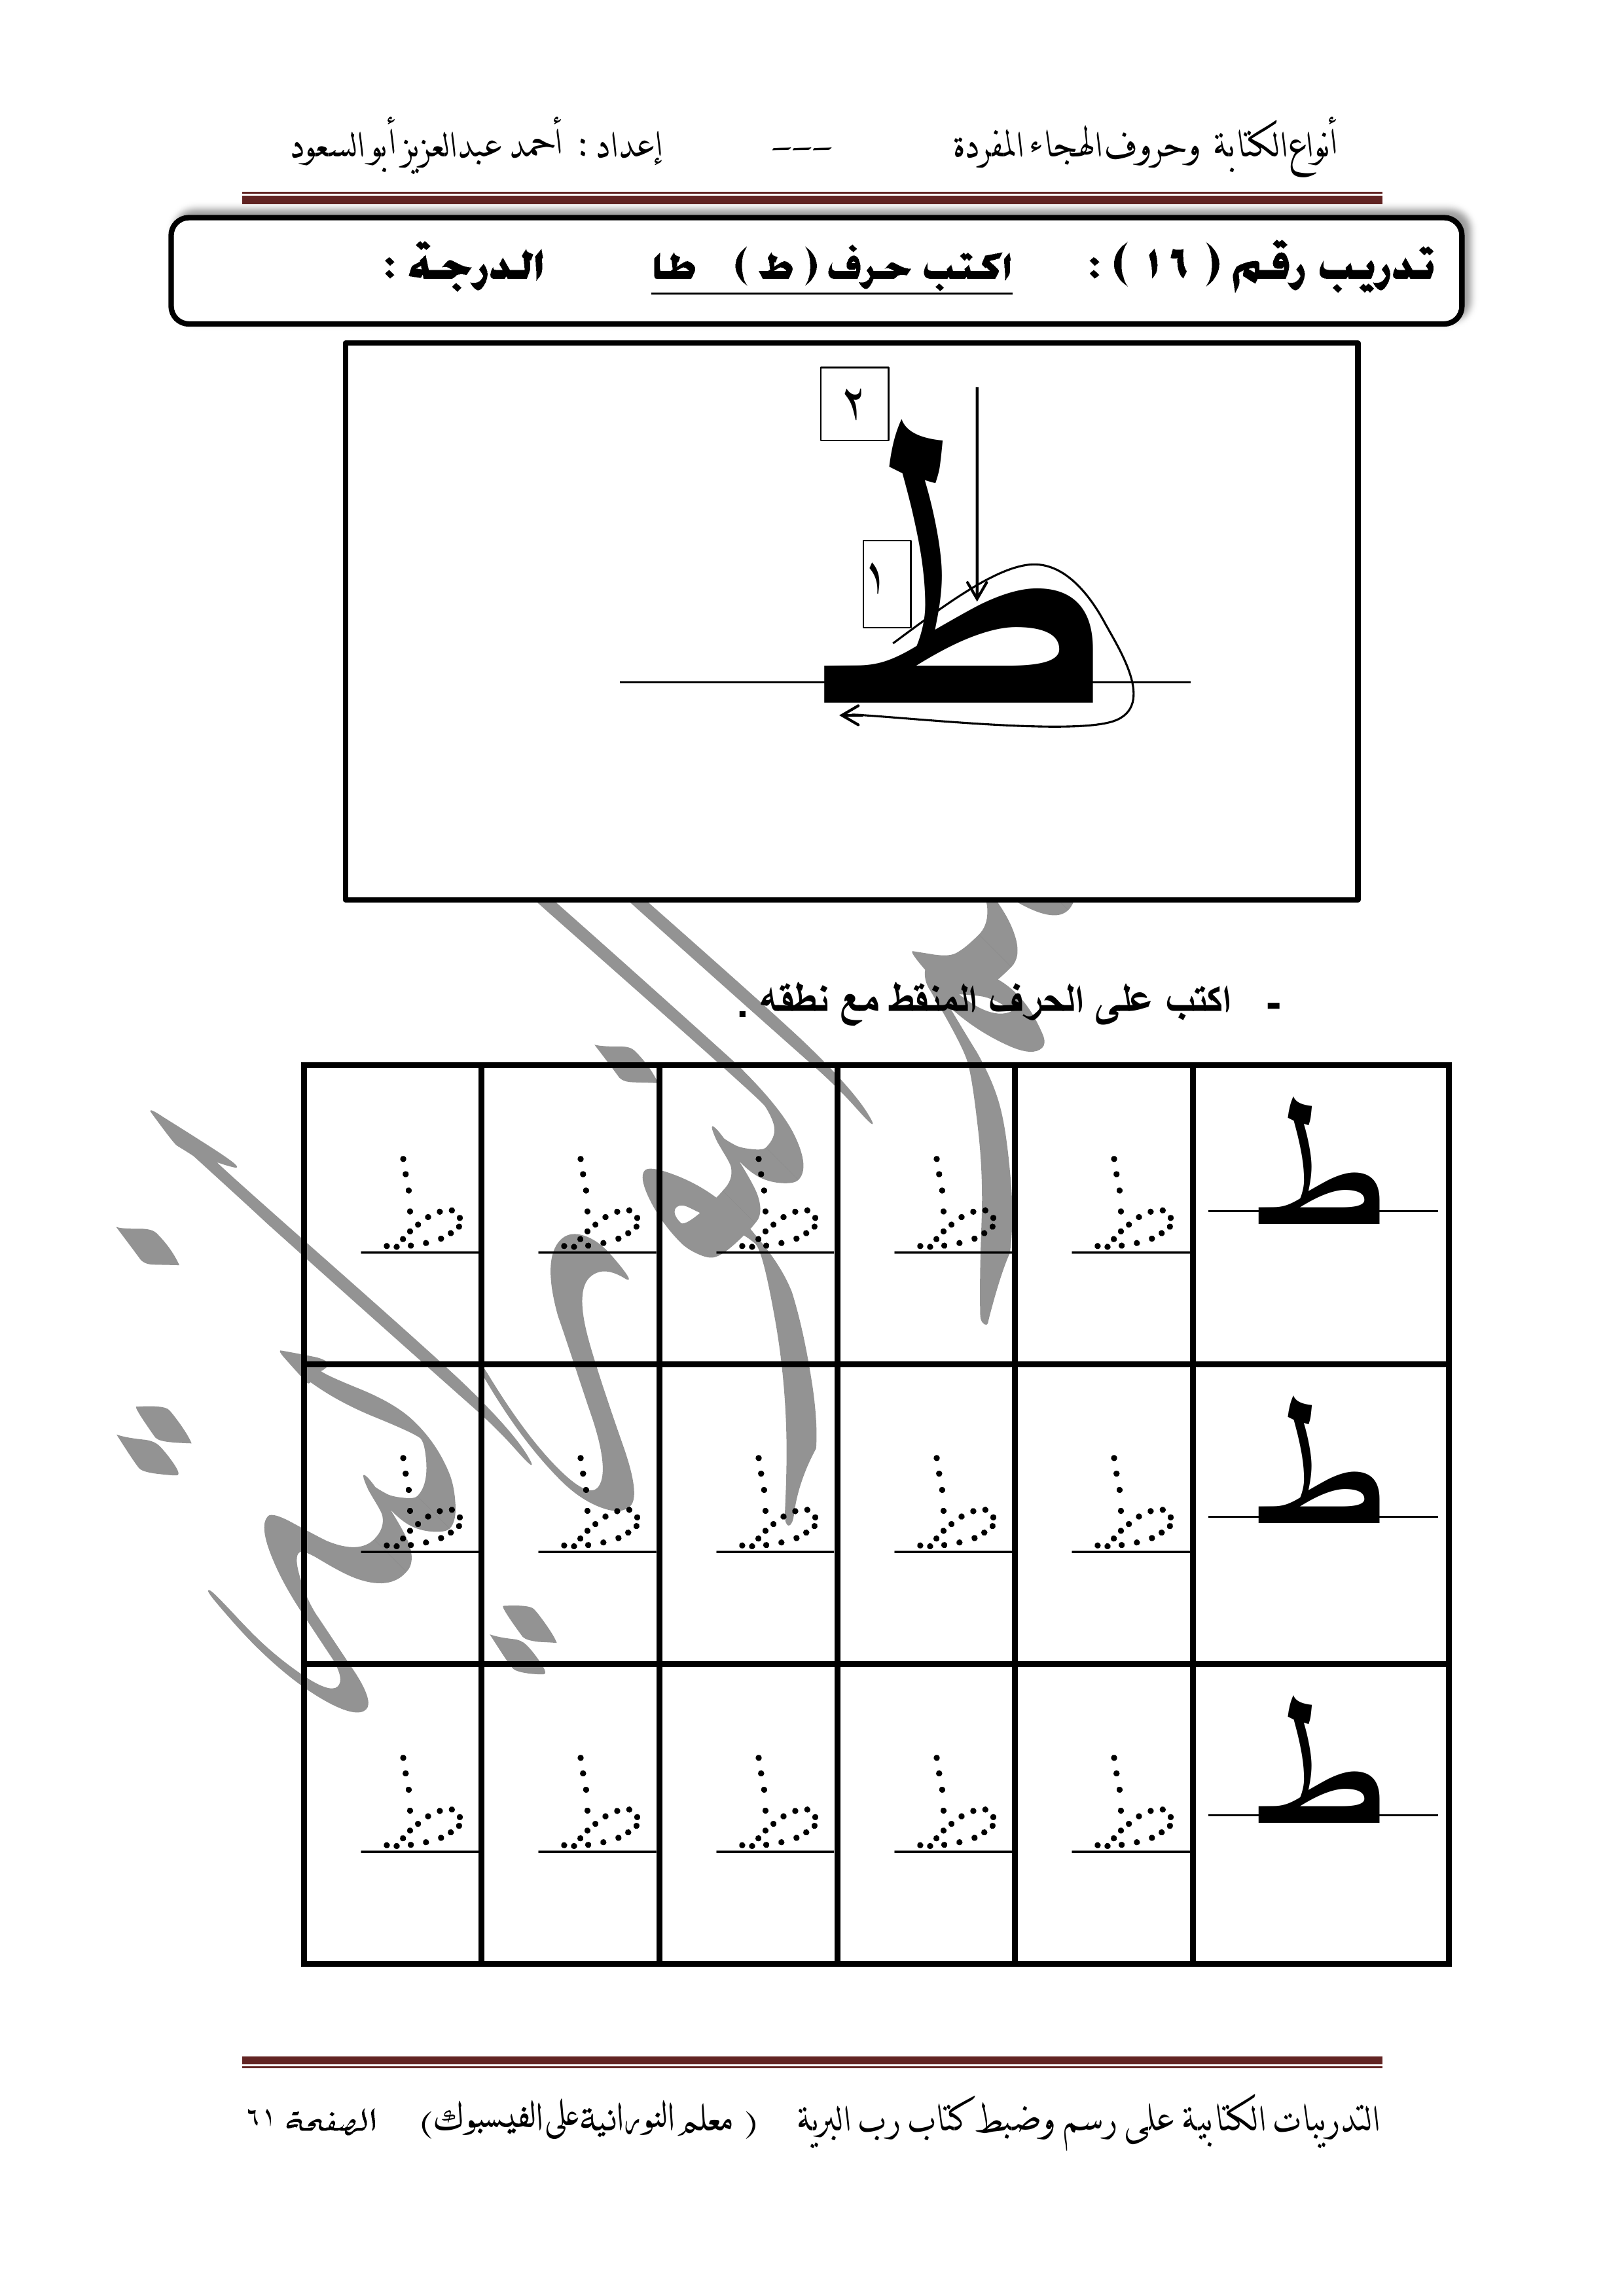 أنواع الكتابة وحروف الهجاء المفردة --- إعداد : أحمد عبدالعزيز أبو السعود
تدريب رقم ( ١٦ ) : اكتب حرف ( ط ) طا الدرجة :
٢
١
ط
- اكتب على الحرف المنقط مع نطقه .
ط ط ط ط ط ط
ط ط ط ط ط ط
ط ط ط ط ط ط
التدريبات الكتابية على رسم وضبط كتاب رب البرية ( معلم النورانية على الفيسبوك ) الصفحة ٦١